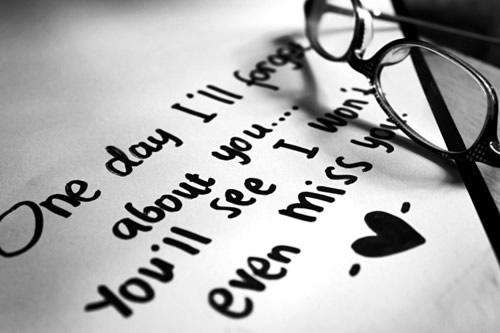 One day I'll forget
about you....
You'll see I won't
even miss you..